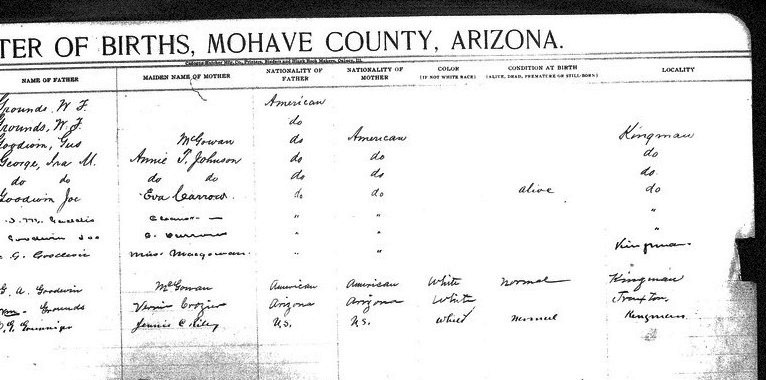 TER OF BIRTHS, MOHAVE COUNTY, ARIZONA.
NAME OF FATHER MAIDEN NAME OF MOTHER NATIONALITY OF FATHER NATIONALITY OF MOTHER COLOR (IF NOT WHITE RACE) CONDITION AT BIRTH (ALIVE, DEAD, PREMATURE OR STILL-BORN) LOCALITY
Grounds, W. F. American
Grounds, W. F. do
Goodwin, Gus McGowan do American Kingman
George, Ira M. Annie T. Johnson do do do
do do do do do do do
Goodwin Joe Eva Carrow do do alive do
" " "
Goodwin Joe " " "
G. Goodwin Miss Macgowan " " Kingman
G. A. Goodwin McGowan American American White Normal Kingman
Grounds Vernie Crozier Arizona Arizona White Truxton,
Jennie C. Riley U.S. U.S. White normal Kingman